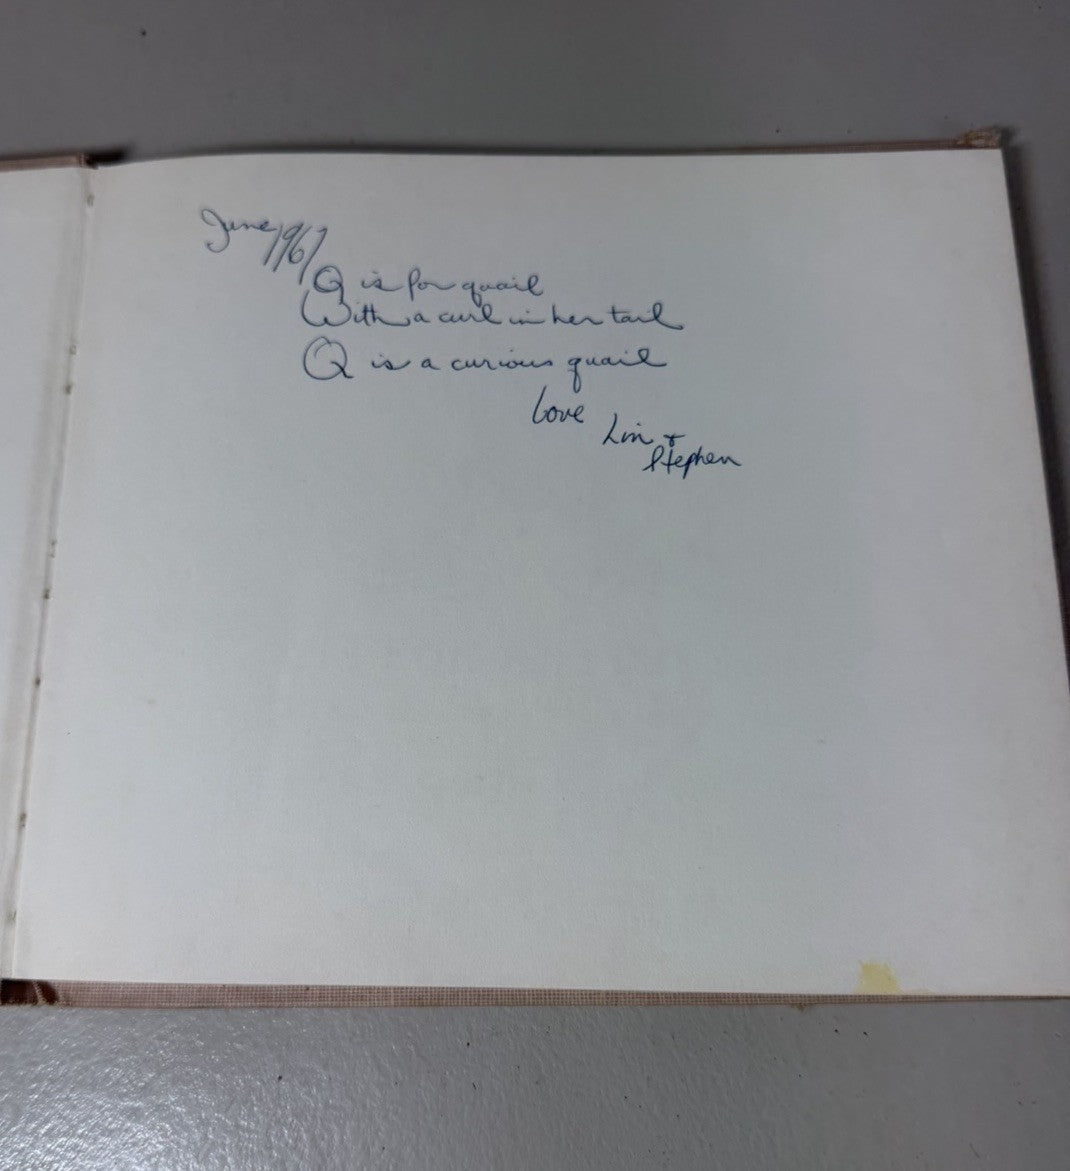 June 1967
Q is for quail
With a curl in her tail
Q is a curious quail
Love
Lin +
Stephen